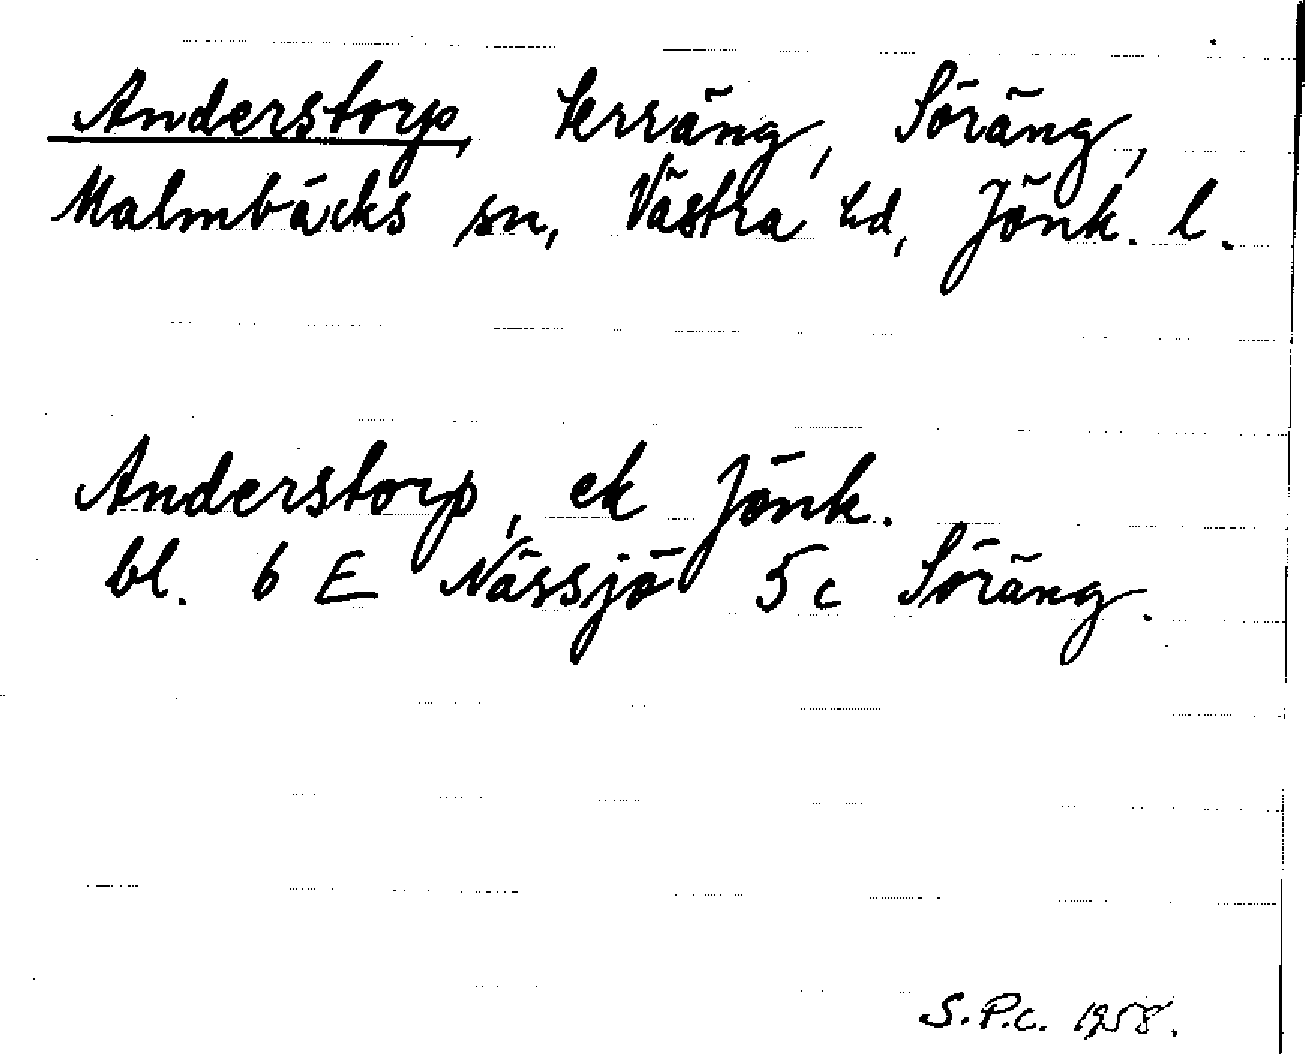 Anderstorp, terräng, Söräng,
Malmbäcks sn, Västra hd, Jönk. l.
Anderstorp, ek Jönk.
bl. 6 E Nässjö 5 c Söräng.
S.P.C. 1958.